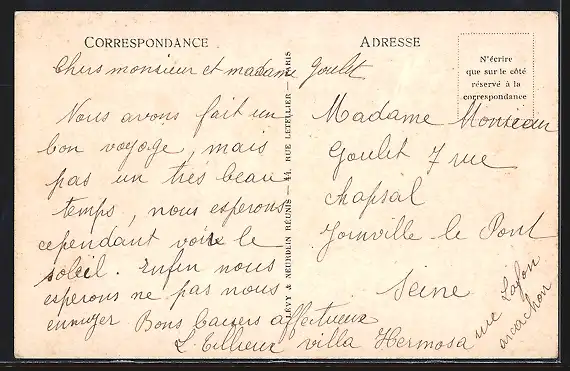 CORRESPONDANCE
Chers monsieur et madame Goulet
Nous avons fait un
bon voyage, mais
pas un très beau
temps, nous esperons
cependant voire le
soleil. Enfin nous
esperons ne pas nous
ennuyer Bons baisers affectueux
villa Hermosa rue Lafon
arcachon
LÉVY & NEURDEIN RÉUNIS — 44, RUE LETELLIER — PARIS
ADRESSE
N'écrire
que sur le côté
réservé à la
correspondance
Madame Monsieur
Goulet 7 rue
chapsal
Joinville le Pont
Seine